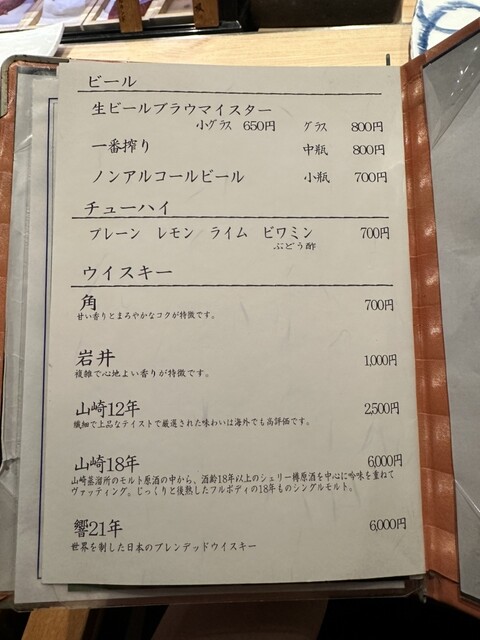 ビール
生ビールブラウマイスター
小グラス 650円 グラス 800円
一番搾り 中瓶 800円
ノンアルコールビール 小瓶 700円
チューハイ
プレーン レモン ライム ビワミン 700円
ぶどう酢
ウイスキー
角 700円
甘い香りとまろやかなコクが特徴です。
岩井 1,000円
複雑で心地よい香りが特徴です。
山崎12年 2,500円
繊細で上品なテイストで厳選された味わいは海外でも高評価です。
山崎18年 6,000円
山崎蒸溜所のモルト原酒の中から、酒齢18年以上のシェリー樽原酒を中心に吟味を重ねて
ヴァッティング。じっくりと後熟したフルボディの18年ものシングルモルト。
響21年 6,000円
世界を制した日本のブレンデッドウイスキー